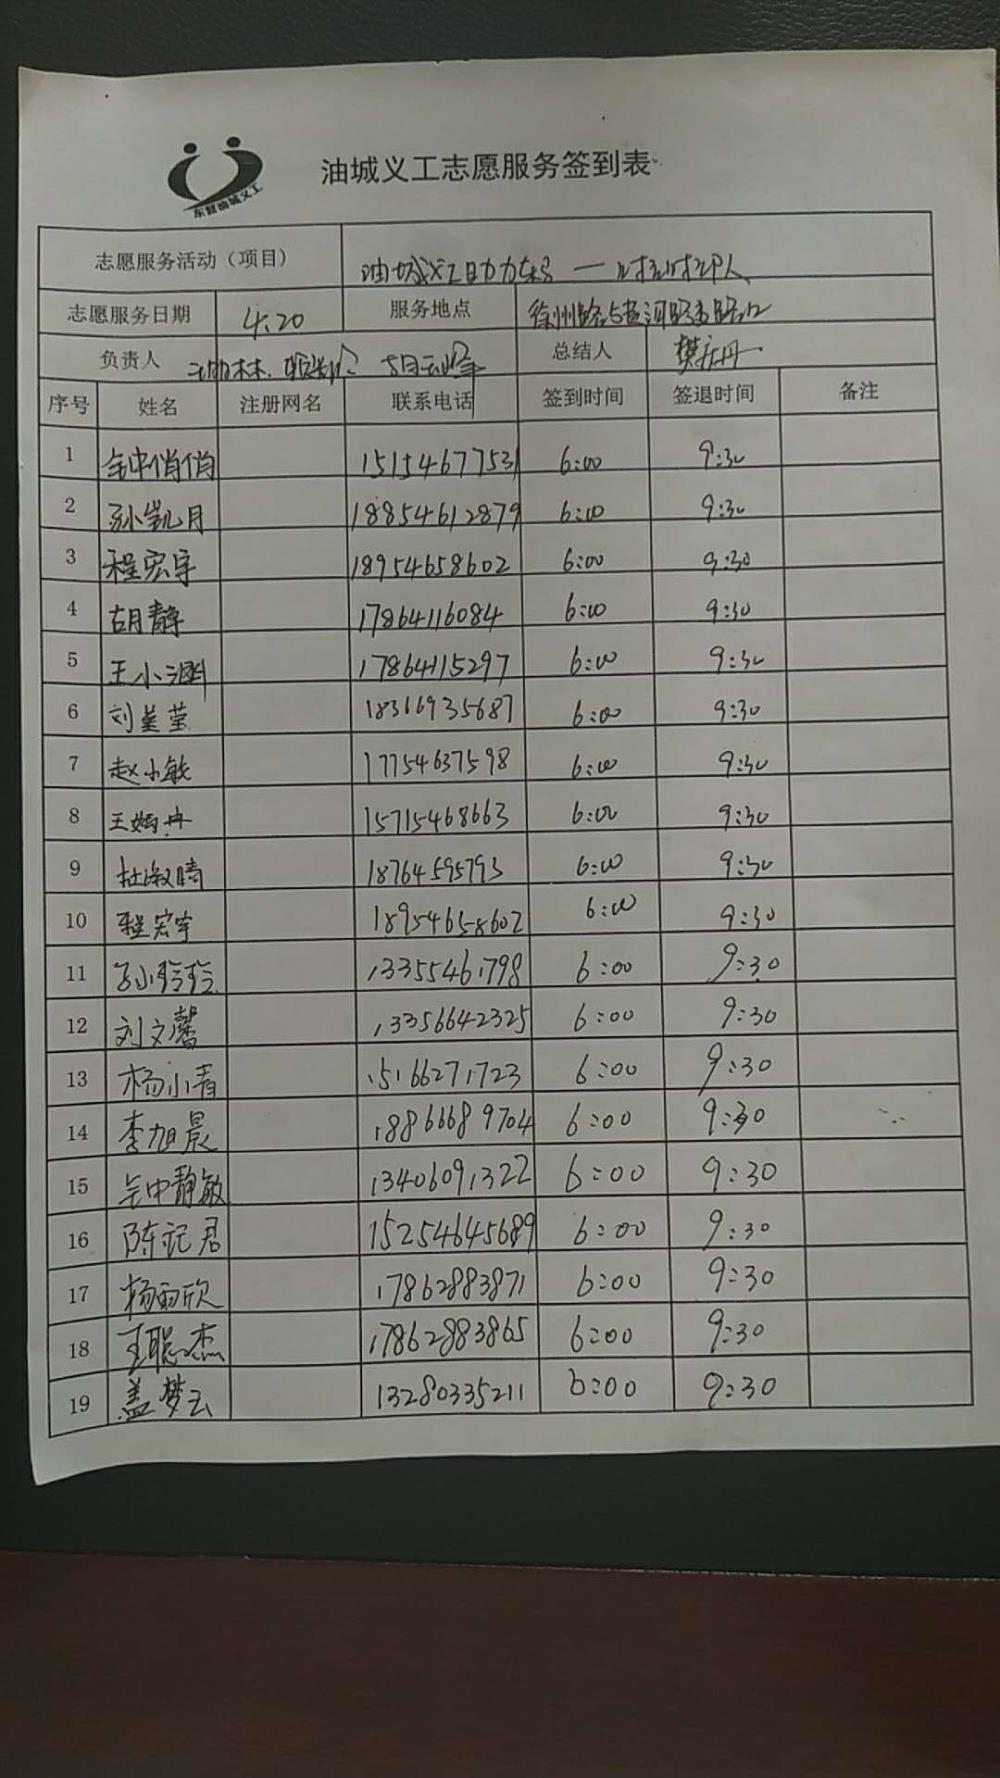 东营油城义工
油城义工志愿服务签到表
志愿服务活动（项目） 油城义工助力东马
志愿服务日期 4.20 服务地点 徐州路与黄河路
负责人 总结人 樊庆丹
序号 姓名 注册网名 联系电话 签到时间 签退时间 备注
1 钟俏俏 15154677531 6:00 9:30
2 孙凯月 18854612879 6:00 9:30
3 程宏宇 18954658602 6:00 9:30
4 胡静 17864116084 6:00 9:30
5 王小涵 17864115297 6:00 9:30
6 刘莹 18316935687 6:00 9:30
7 赵小敏 17754637598 6:00 9:30
8 王娟冉 15715468663 6:00 9:30
9 杜淑晴 18764595793 6:00 9:30
10 程宏宇 18954658602 6:00 9:30
11 孙玲玲 13355461798 6:00 9:30
12 刘文馨 13356642325 6:00 9:30
13 杨小青 15166271723 6:00 9:30
14 李旭晨 18866689704 6:00 9:30
15 钟静敏 13406091322 6:00 9:30
16 陈记君 15254645689 6:00 9:30
17 杨雨欣 17862883871 6:00 9:30
18 王聪杰 17862883865 6:00 9:30
19 盖梦云 13280335211 6:00 9:30